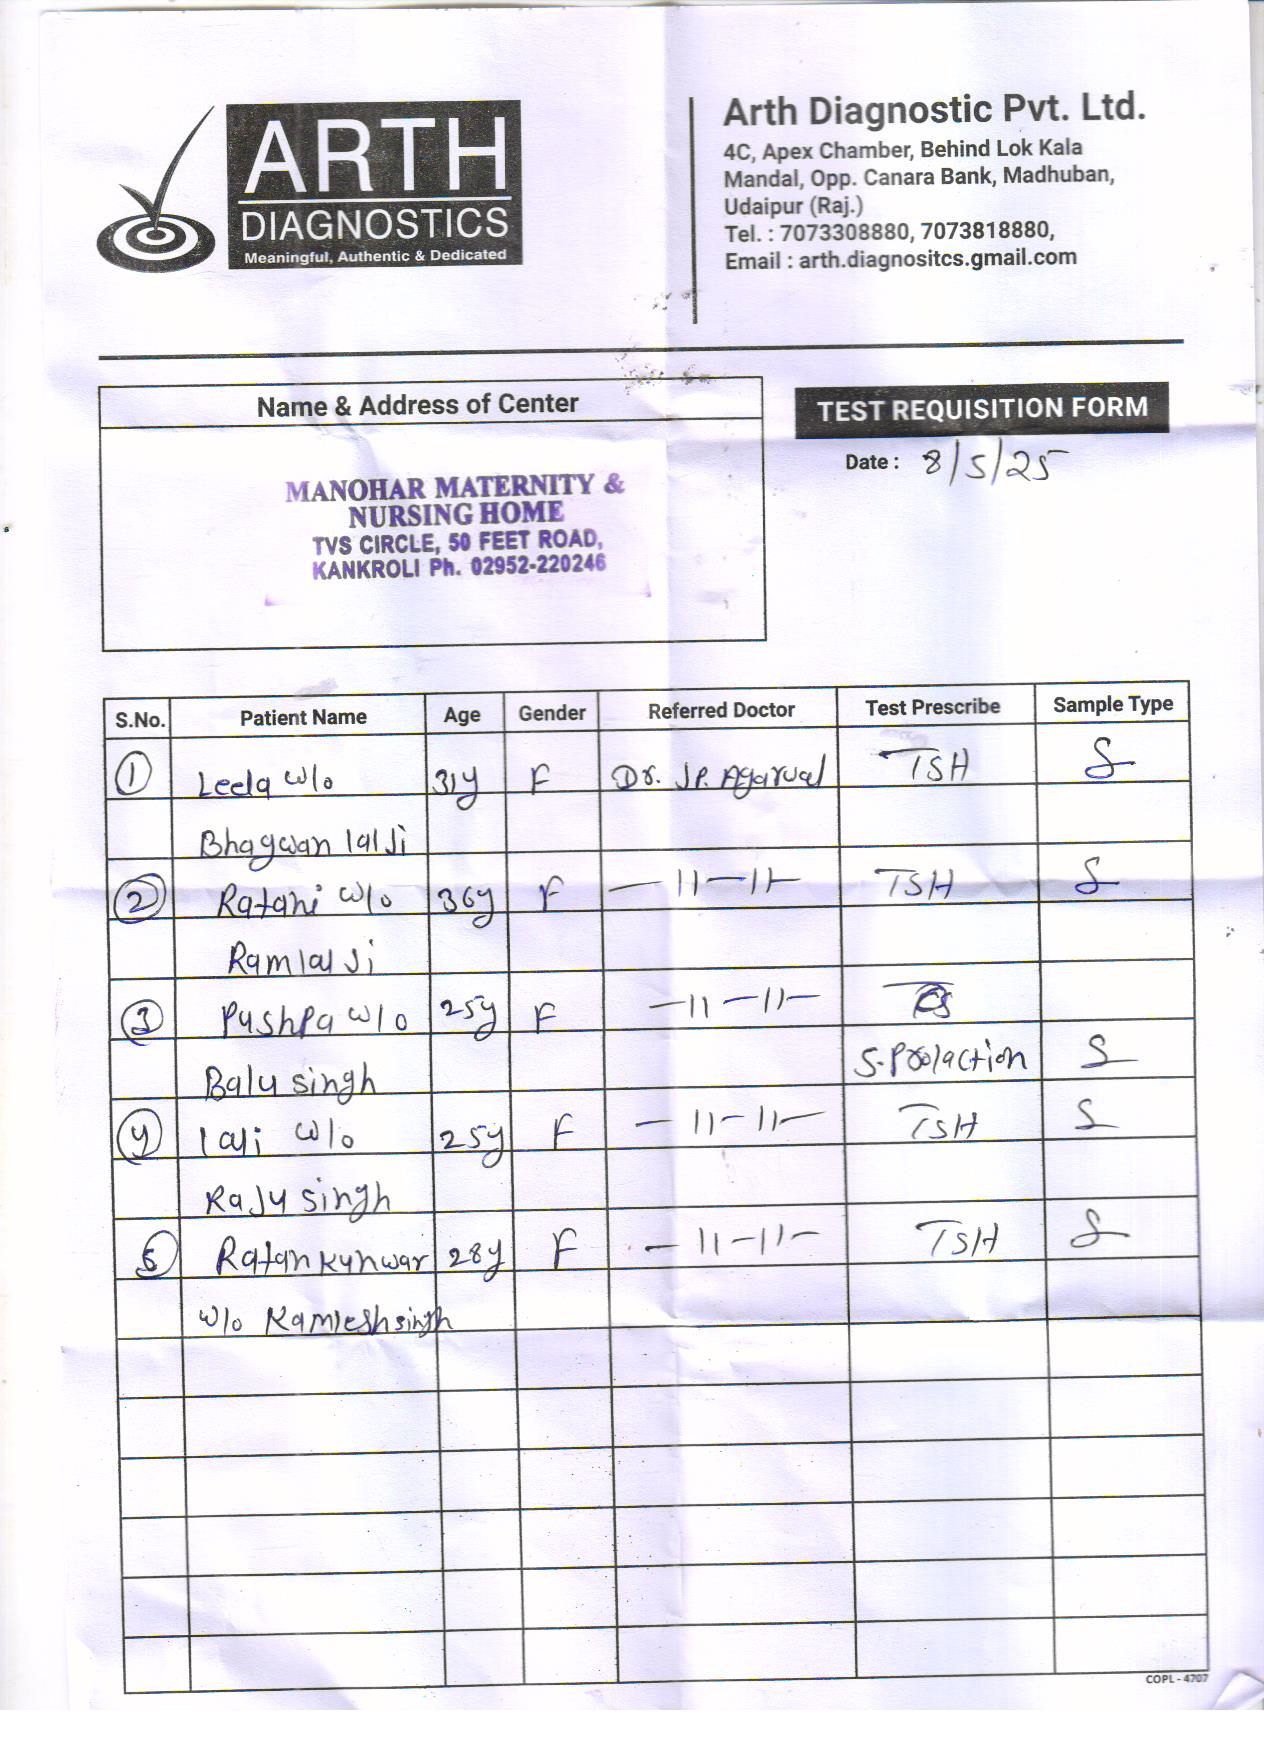 ARTH
DIAGNOSTICS
Meaningful, Authentic & Dedicated
Arth Diagnostic Pvt. Ltd.
4C, Apex Chamber, Behind Lok Kala
Mandal, Opp. Canara Bank, Madhuban,
Udaipur (Raj.)
Tel. : 7073308880, 7073818880,
Email : arth.diagnositcs.gmail.com
Name & Address of Center
MANOHAR MATERNITY &
NURSING HOME
TVS CIRCLE, 50 FEET ROAD,
KANKROLI Ph. 02952-220246
TEST REQUISITION FORM
Date : 8/5/25
S.No. Patient Name Age Gender Referred Doctor Test Prescribe Sample Type
1 Leela w/o 31y F Dr. J.P. Agarwal TSH S
Bhagwan lal Ji
2 Ratani w/o 36y F —11—11— TSH S
Ramlal Ji
3 Pushpa w/o 25y F —11—11—
Balu singh S-Prolaction S
4 lali w/o 25y F —11—11— TSH S
Raju singh
5 Ratan kunwar 28y F —11—11— TSH S
w/o Kamlesh singh
COPL - 4707